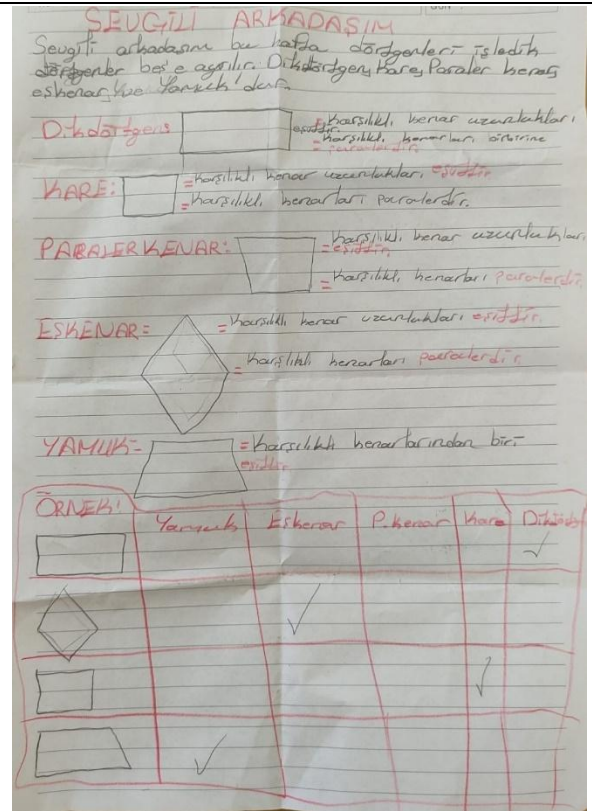 SEVGİLİ ARKADAŞIM
Sevgili arkadaşım bu hafta dörtgenleri işledik
dörtgenler beş'e ayrılır. Dikdörtgen, Kare, Paraler kenar,
eşkenar, ve Yamuk'dur.
Dikdörtgen: =Karşılıklı kenar uzunlukları
eşiddir.
=Karşılıklı kenarları birbirine
paralerdir.
KARE: =Karşılıklı kenar uzunlukları eşiddir
=Karşılıklı kenarları paralerdir.
PARALERKENAR: =Karşılıklı kenar uzunlukları
eşiddir.
=Karşılıklı kenarları paralerdir.
ESKENAR= =Karşılıklı kenar uzunlukları eşiddir.
=Karşlıklı kenarları paralerdir.
YAMUK= =Karşılıklı kenarlarından biri
eşiddir.
ÖRNEK: Yamuk Eşkenar P.kenar Kare